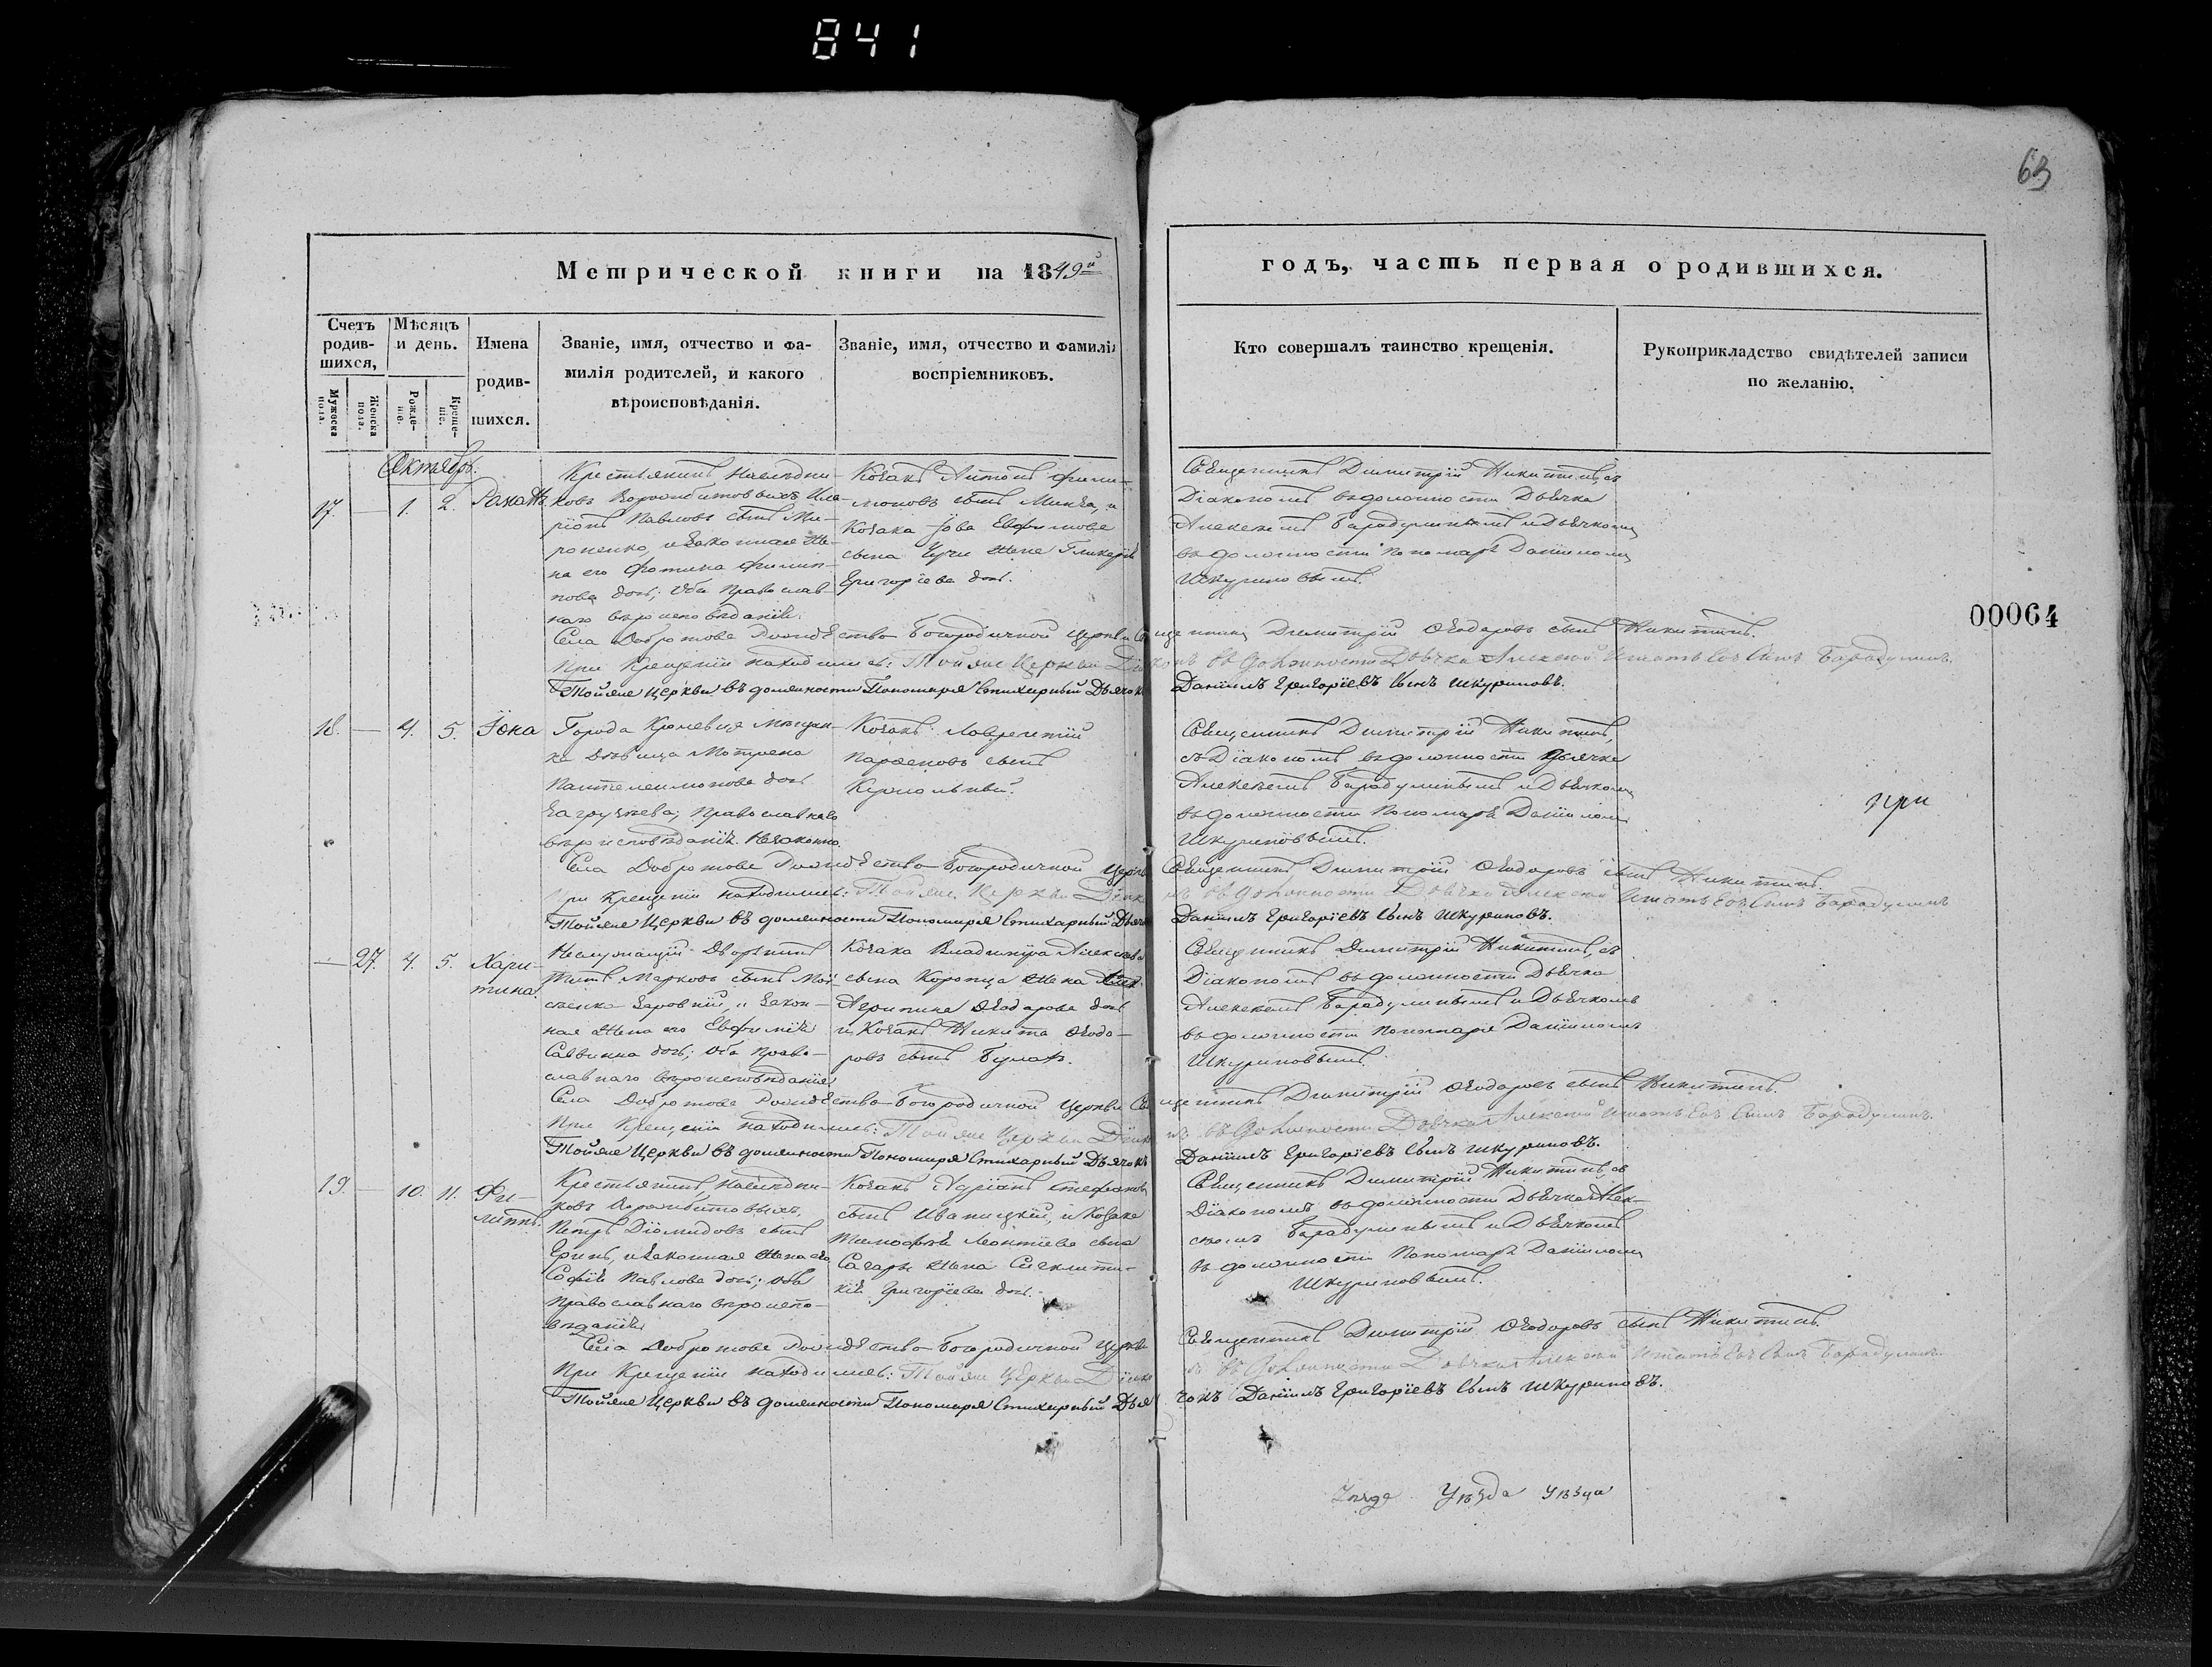 841
63
Метрической книги на 1849й
годъ, часть первая о родившихся.
Счетъ родив-шихся,
Мужеска пола.
Женска пола.
Мѣсяцъ и день.
Рожде-ніе.
Креще-ніе.
Имена
родив-
шихся.
Званіе, имя, отчество и фа-
милія родителей, и какого
вѣроисповѣданія.
Званіе, имя, отчество и фамилія
воспріемниковъ.
Кто совершалъ таинство крещенія.
Рукоприкладство свидѣтелей записи
по желанію.
Октябрь.
17. — 1. 2. Романъ
Крестьянинъ наслѣдни-
ковъ Ила-
ріонъ Павловъ сынъ Ми-
роненко, и законная же-
на его Фотина Филип-
пова дочь; оба православ-
наго вѣроисповѣданія.
Козакъ Антонъ Фили-
моновъ сынъ Минка, и
Козака Іова Евфимова
сына жена Гликерія
Григоріева дочь.
Священникъ Димитрій Никитинъ, съ
Діакономъ въ должности Дьячка
Алексѣемъ Барадулинымъ и Дьячкомъ
въ должности Пономаря Даніиломъ
Шкуриновымъ.
00064
Села Добротова Рождество-Богородичной Церкви Священникъ Димитрій Ѳеодоровъ сынъ Никитинъ.
При Крещеніи находились: Тойже Церкви Діаконъ въ должности Дьячка Алексей Игнатьевъ Сынъ Барадулинъ.
Тойже Церкви въ должности Пономаря Стихарный Дьячокъ Даніилъ Григоріевъ Сынъ Шкуриновъ.
18. — 4. 5. Іона
Города Кролевца мѣщан-
ка Дѣвица Матрона
Пантелеимонова дочь
православнаго
вѣроисповѣданія. Незаконно.
Козакъ Лаврентій
Парѳеновъ сынъ
Священникъ Димитрій Никитинъ,
съ Діакономъ въ должности Дьячка
Алексѣемъ Барадулинымъ и Дьячкомъ
въ должности Пономаря Даніиломъ
Шкуриновымъ.
при
Села Добротова Рождество-Богородичной Церкви Священникъ Димитрій Ѳеодоровъ сынъ Никитинъ.
При Крещеніи находились: Тойже Церкви Діаконъ въ должности Дьячка Алексей Игнатьевъ Сынъ Барадулинъ
Тойже Церкви въ должности Пономаря Стихарный Дьячокъ Даніилъ Григоріевъ Сынъ Шкуриновъ.
— 27. 4. 5. Хари-
тина.
Неслужащій Дворянинъ
Марковъ сынъ Мои-
сѣенко и закон-
ная жена его Евфимія
Саввина дочь; оба право-
славнаго вѣроисповѣданія
Козака Владимира Алексѣева
сына Коропца жена
Агрипина Ѳеодорова дочь
и Козакъ Никита Ѳеодо-
ровъ сынъ
Священникъ Димитрій Никитинъ, съ
Діакономъ въ должности Дьячка
Алексѣемъ Барадулинымъ и Дьячкомъ
въ должности Пономаря Даніиломъ
Шкуриновымъ.
Села Добротова Рождество-Богородичной Церкви Священникъ Димитрій Ѳеодоровъ сынъ Никитинъ.
При Крещеніи находились: Тойже Церкви Діаконъ въ должности Дьячка Алексей Игнатьевъ Сынъ Барадулинъ.
Тойже Церкви въ должности Пономаря Стихарный Дьячокъ Даніилъ Григоріевъ Сынъ Шкуриновъ.
19. — 10. 11. Фи-
липпъ.
Крестьянинъ наслѣдни-
ковъ
Петръ Діомидовъ сынъ
и законная жена его
Софія Павлова дочь; оба
православнаго вѣроиспо-
вѣданія
Козакъ Адріанъ Стефановъ
сынъ Иваницкій, и Козака
Тимофея Леонтіева сына
жена Синклити-
кія Григоріева дочь.
Священникъ Димитрій Никитинъ, съ
Діакономъ въ должности Дьячка Алек-
сѣемъ Барадулинымъ и Дьячкомъ
въ должности Пономаря Даніиломъ
Шкуриновымъ.
Села Добротова Рождество-Богородичной Церкви Священникъ Димитрій Ѳеодоровъ сынъ Никитинъ.
При Крещеніи находились: Тойже Церкви Діаконъ въ должности Дьячка Алексей Игнатьевъ Сынъ Барадулинъ
Тойже Церкви въ должности Пономаря Стихарный Дьячокъ Даніилъ Григоріевъ Сынъ Шкуриновъ.
Уѣзда